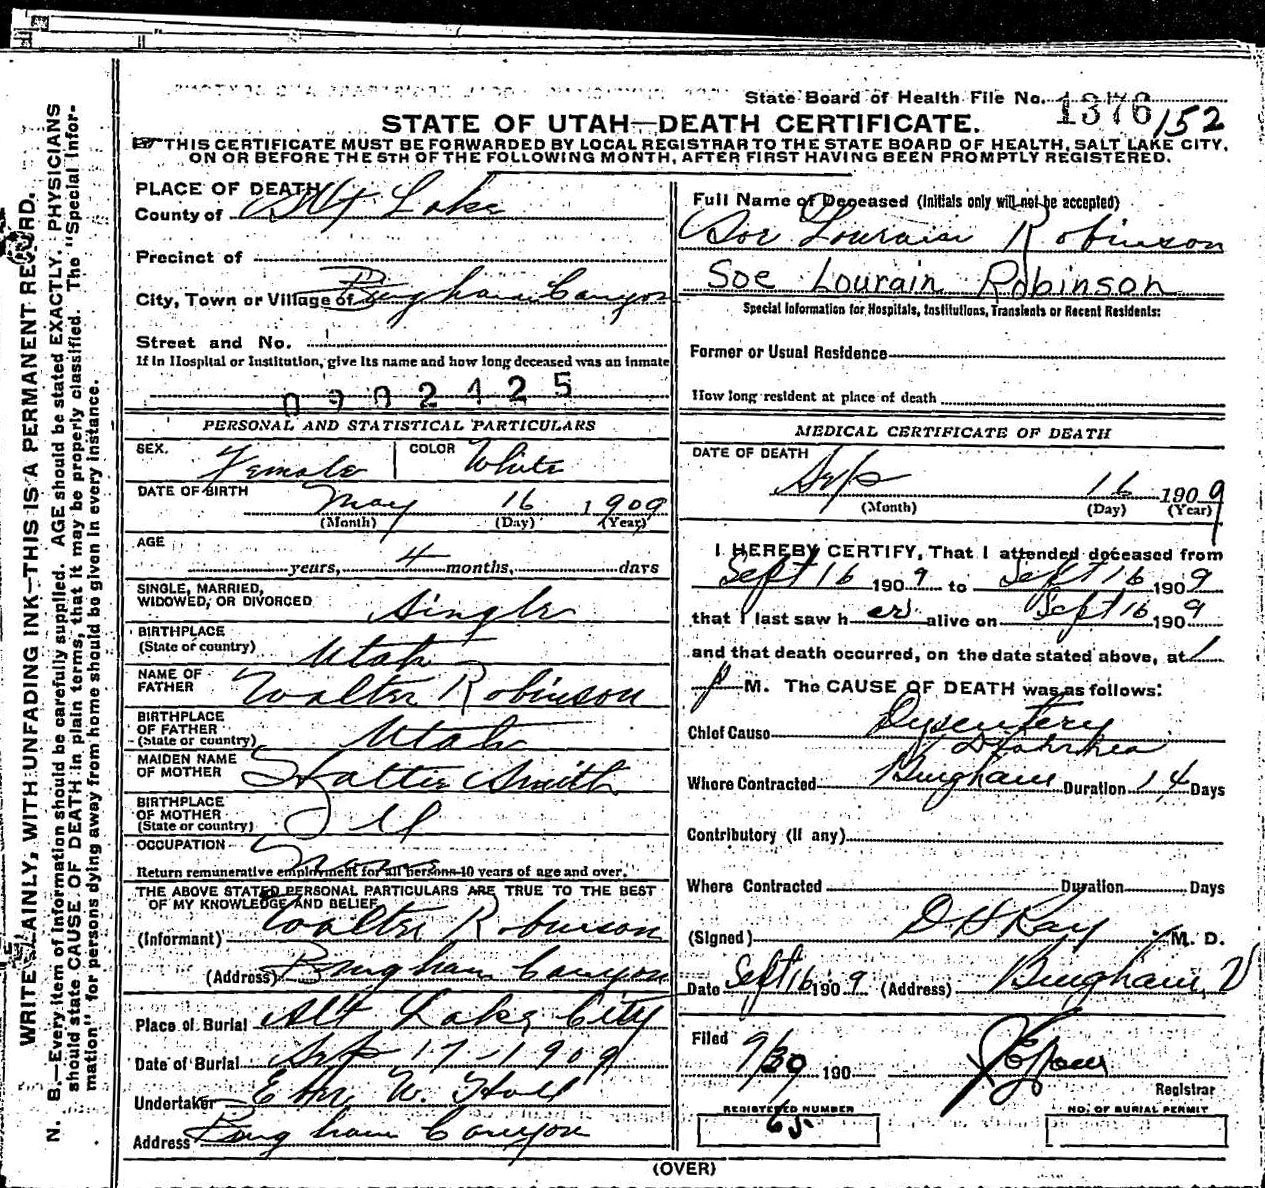 State Board of Health File No. 1376 152
STATE OF UTAH—DEATH CERTIFICATE.
THIS CERTIFICATE MUST BE FORWARDED BY LOCAL REGISTRAR TO THE STATE BOARD OF HEALTH, SALT LAKE CITY,
ON OR BEFORE THE 5TH OF THE FOLLOWING MONTH, AFTER FIRST HAVING BEEN PROMPTLY REGISTERED.
WRITE PLAINLY, WITH UNFADING INK—THIS IS A PERMANENT RECORD.
N. B.—Every item of information should be carefully supplied. AGE should be stated EXACTLY. PHYSICIANS
should state CAUSE OF DEATH in plain terms, that it may be properly classified. The "Special Infor-
mation" for persons dying away from home should be given in every instance.
PLACE OF DEATH
County of Slt Lake
Precinct of
City, Town or Village of Bingham Canyon
Street and No.
If in Hospital or Institution, give its name and how long deceased was an inmate
0902425
PERSONAL AND STATISTICAL PARTICULARS
SEX. Female COLOR White
DATE OF BIRTH May 16 1909
(Month) (Day) (Year)
AGE
years, 4 months, days
SINGLE, MARRIED,
WIDOWED, OR DIVORCED Single
BIRTHPLACE
(State or country) Utah
NAME OF
FATHER Walter Robinson
BIRTHPLACE
OF FATHER
(State or country) Utah
MAIDEN NAME
OF MOTHER Hattie Smith
BIRTHPLACE
OF MOTHER
(State or country) Ill
OCCUPATION None
Return remunerative employment for all persons 10 years of age and over.
THE ABOVE STATED PERSONAL PARTICULARS ARE TRUE TO THE BEST
OF MY KNOWLEDGE AND BELIEF
(Informant) Walter Robinson
(Address) Bingham Canyon
Place of Burial Slt Lake City
Date of Burial Sep 17-1909
Undertaker W. Hall
Address Bingham Canyon
Full Name of Deceased (Initials only will not be accepted)
Soe Lourain Robinson
Soe Lourain Robinson
Special Information for Hospitals, Institutions, Transients or Recent Residents:
Former or Usual Residence
How long resident at place of death
MEDICAL CERTIFICATE OF DEATH
DATE OF DEATH
Sep 16 1909
(Month) (Day) (Year)
I HEREBY CERTIFY, That I attended deceased from
Sept 16 1909 to Sept 16 1909
that I last saw h er alive on Sept 16 1909
and that death occurred, on the date stated above, at 1
P M. The CAUSE OF DEATH was as follows:
Chief Cause Dysentery
Diahrhea
Where Contracted Bingham Duration 14 Days
Contributory (If any)
Where Contracted Duration Days
(Signed) D H Ray M. D.
Date Sept 16 1909 (Address) Bingham, U
Filed 9/30 190
Registrar
REGISTERED NUMBER
65
NO. OF BURIAL PERMIT
(OVER)